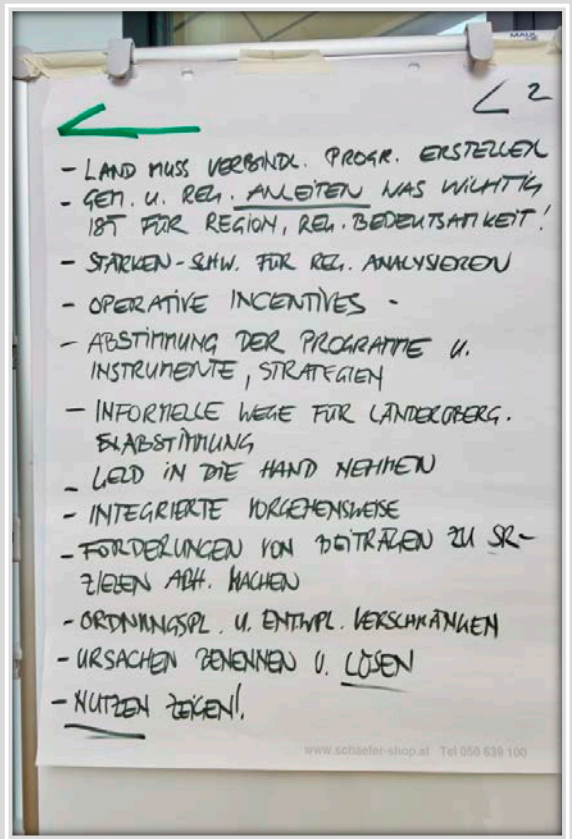 MAUL
L 2
- LAND MUSS VERBINDL. PROGR. ERSTELLEN
- GEM. U. REG. ANLEITEN WAS WICHTIG
IST FÜR REGION, REG. BEDEUTSAMKEIT!
- STÄRKEN-SCHW. FÜR REG. ANALYSIEREN
- OPERATIVE INCENTIVES -
- ABSTIMMUNG DER PROGRAMME U.
INSTRUMENTE, STRATEGIEN
- INFORMELLE WEGE FÜR LÄNDERÜBERG.
ABSTIMMUNG
- GELD IN DIE HAND NEHMEN
- INTEGRIERTE VORGEHENSWEISE
- FÖRDERUNGEN VON BEITRÄGEN ZU SR-
ZIELEN ABH. MACHEN
- ORDNUNGSPL. U. ENTWPL. VERSCHRÄNKEN
- URSACHEN BENENNEN U. LÖSEN
- NUTZEN ZEIGEN!
www.schaefer-shop.at Tel 050 639 100